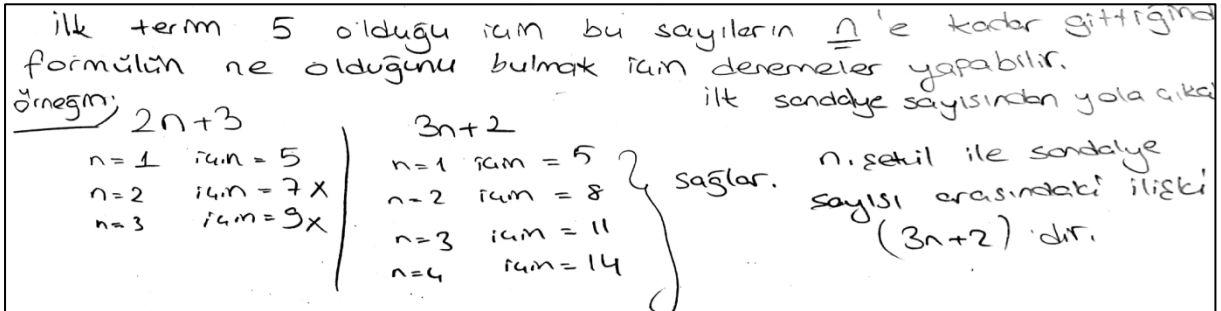 ilk term 5 olduğu için bu sayıların n 'e kadar gittiğind
formülün ne olduğunu bulmak için denemeler yapabilir.
Örneğin; ilk sandalye sayısından yola çıka
2n+3
n = 1 için = 5
n = 2 için = 7 x
n = 3 için = 9 x
3n+2
n = 1 için = 5
n = 2 için = 8
n = 3 için = 11
n = 4 için = 14
sağlar.
n. şekil ile sandalye
sayısı arasındaki ilişki
(3n+2) dir.